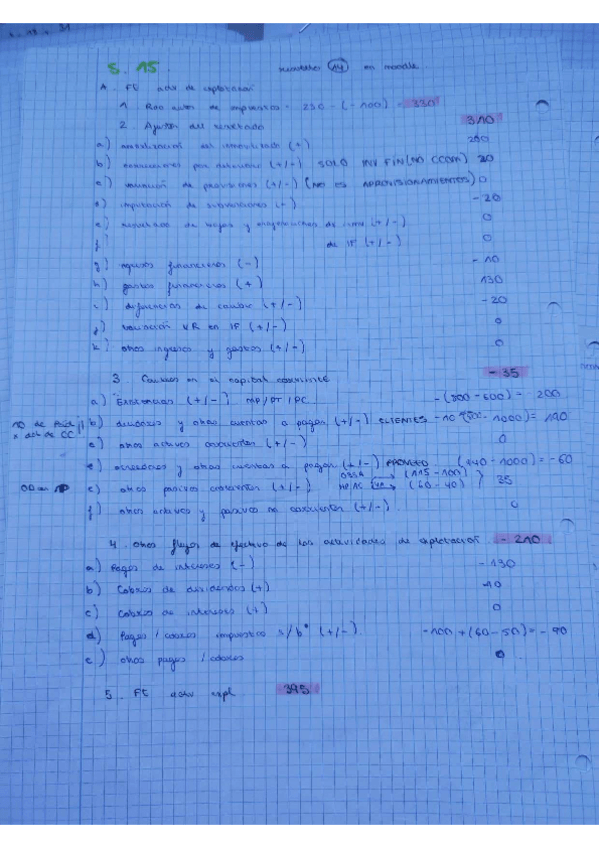 5. 15. numero 14 en moodle
A. FE activ de explotación
1. Rdo antes de impuestos = 230 - (-100) = 330
2. Ajustes del resultado 310
a) amortización del inmovilizado (+) 200
b) correcciones por deterioro (+/-) SOLO INV FIN (NO CCOM) 20
c) variación de provisiones (+/-) (NO ES APROVISIONAMIENTOS) 0
d) imputación de subvenciones (-) -20
e) resultados de bajas y enajenaciones de inmv (+/-) 0
f) de IF (+/-) 0
g) ingresos financieros (-) -10
h) gastos financieros (+) 130
i) diferencias de cambio (+/-) -20
j) variación VR en IF (+/-) 0
k) otros ingresos y gastos (+/-) 0
3. Cambios en el capital corriente -35
a) Existencias (+/-) MP / PT / PC -(800-600) = 200
b) deudores y otras cuentas a pagar (+/-) CLIENTES -1000) = 190
c) otros activos corrientes (+/-) 0
d) acreedores y otras cuentas a pagar (+/-) PROVEED (940-1000) = -60
e) otros pasivos corrientes (+/-) (115-100) (60-40) 35
f) otros activos y pasivos no corrientes (+/-) 0
4. Otros flujos de efectivo de las actividades de explotación -210
a) Pagos de intereses (-) -130
b) Cobros de dividendos (+) 10
c) Cobros de intereses (+) 0
d) Pagos / cobros impuestos s/bº (+/-) -100 + (60-50) = -90
e) otros pagos / cobros 0
5. FE activ expl 395